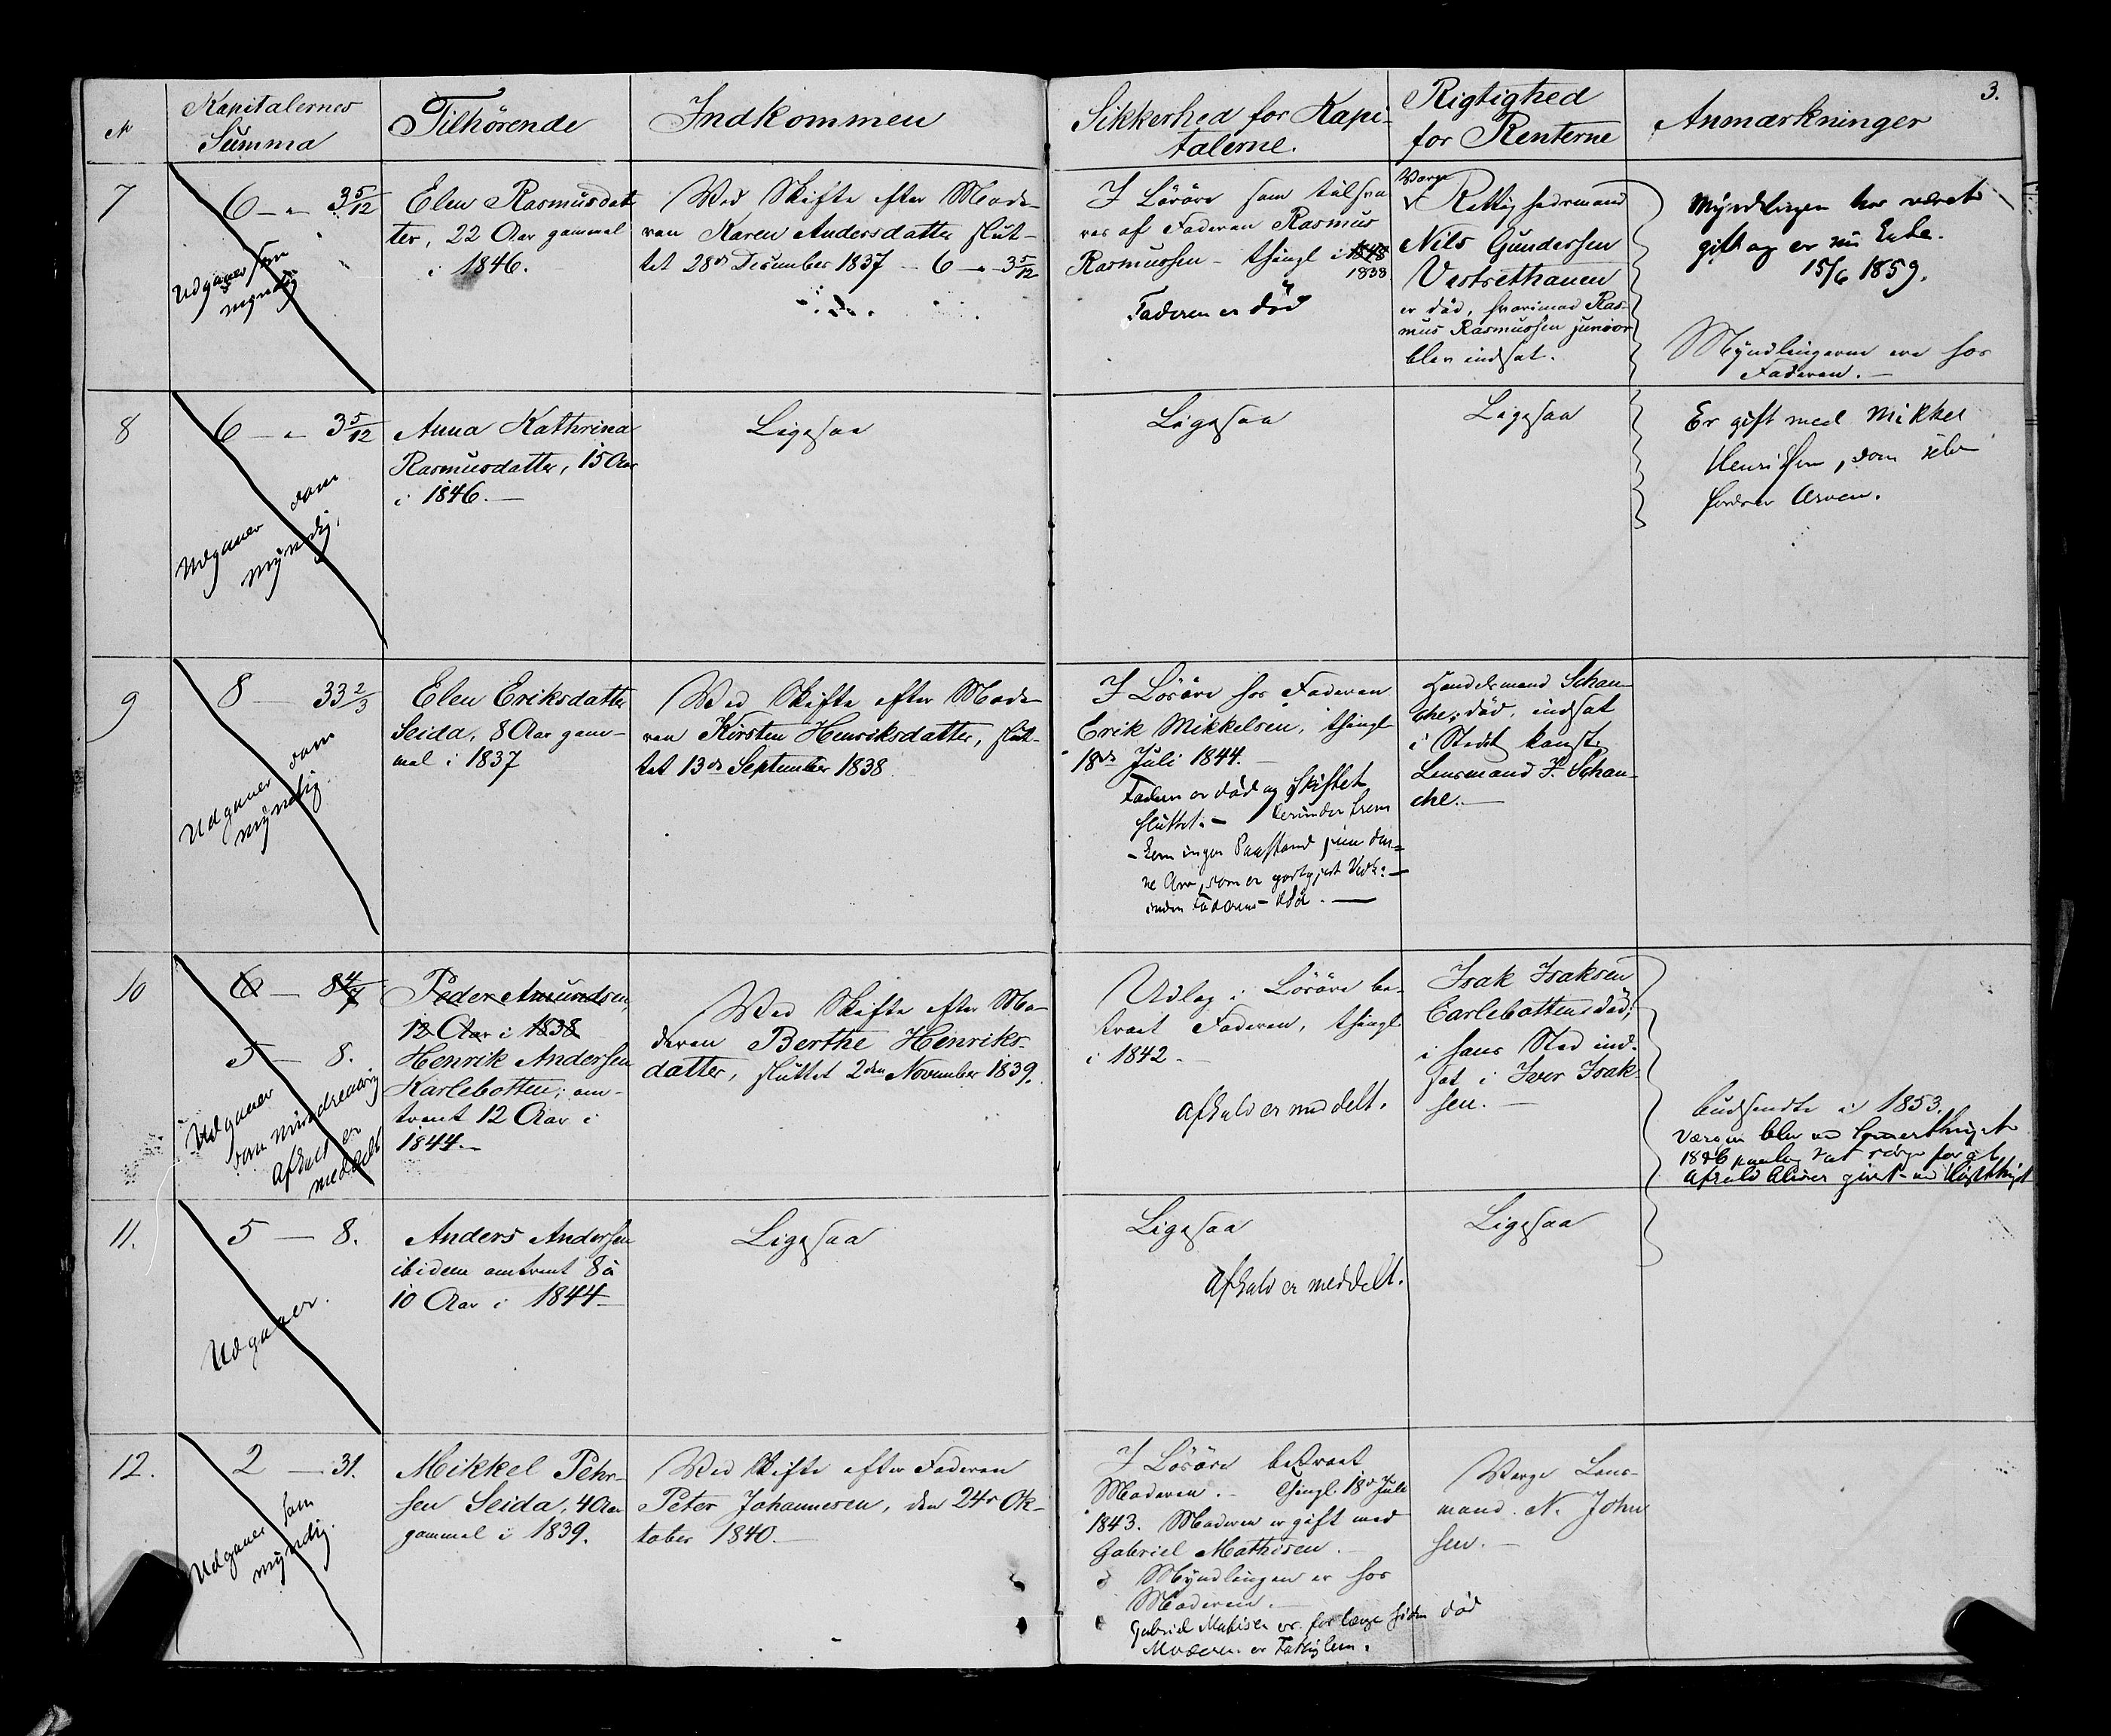 3.
№
Kapitalernes
Summa
Tilhörende
Indkommen
Sikkerhed for Kapi-
talerne.
Rigtighed
for Renterne
Anmærkninger
7
6 - " - 3 5/12
Udgaaer som
myndig
Elen Rasmusdat
ter, 22 Aar gammel
i 1846.
Ved Skifte efter Mode-
ren Karen Andersdatter slut-
tet 28de December 1837 - 6 - " - 3 5/12
I Lösöre som tilsva
res af Faderen Rasmus
Rasmussen - thingl i 1848
1838
Faderen er död
Værge
Rettighedsmand
Nils Gundersen
Vestrethanen
er död, hvorimod Ras-
mus Rasmussen junior
blev indsat.
Myndlingen har været
gift og er nu Enke.
15/6 1859.
Myndlingerne ere hos
Faderen.-
8
6 - " - 3 5/12
Udgaaer som
myndig.
Anna Kathrina
Rasmusdatter, 15 Aar
i 1846.-
Ligesaa
Ligesaa
Ligesaa
Er gift med Mikkel
Henriksen, som selv
fordrer Arven.
9
8 - 33 2/3
Udgaaer som
myndig.
Elen Eriksdatter
Seida, 8 Aar gam-
mel i 1837
Ved Skifte efter Mode-
ren Kirsten Henriksdatter, slut-
tet 13de September 1838
I Lösöre hos Faderen
Erik Mikkelsen, thingl
18de Juli 1844.-
Faderen er död og Skiftet
sluttet.- Herunder frem
- kom ingen Paastand den-
ne Arv, som er
inden Faderens Död.-
Handelsmand Schan-
che, död, indsat
i Stedet konst.
Lensmand Schan-
che.-
10
6 - 8 4/7
5 - 8.
Udgaaer
som mindreaarig
Afkald er
meddelt
Peder Amundsen,
12 Aar i 1838
Henrik Andersen
Karlebotten; om-
trent 12 Aar i
1844.-
Ved Skifte efter Mo-
deren Berthe Henriks-
datter, sluttet 2den November 1839.
Udlag i Lösöre be-
troet Faderen, thingl
i 1842-
Afkald er meddelt.
Isak Isaksen
Carlebotten död;
i hans Sted ind-
sat i Iver Isak-
sen.-
budsendte i 1853.
Værgen blev ved
1856 paalagt at sörge for at
Afkald bliver givet ved Höstthinget
11.
5 - 8.
Udgaaer.
Anders Andersen
ibidem omtrent 8 à
10 Aar i 1844-
Ligesaa
Ligesaa
Afkald er meddelt.
Ligesaa
12.
2 - 31.
Udgaaer som
myndig.
Mikkel Pehr-
sen Seida, 4 Aar
gammel i 1839.
Ved Skifte efter Faderen
Peter Johannesen, den 24de Ok-
tober 1840.-
I Lösöre betroet
Moderen.- thingl. 18de Juli
1843. Moderen er gift med
Gabriel Mathisen.-
Myndlingen er hos
Moderen.-
Gabriel Mathisen er for længe siden död
Moderen er Fattiglem.
Værge Lens-
mand N. John
sen.-